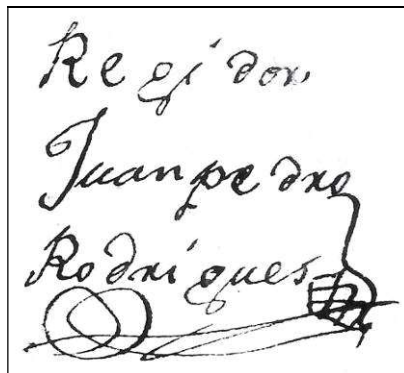 Regidor
Juan pedro
Rodrigues